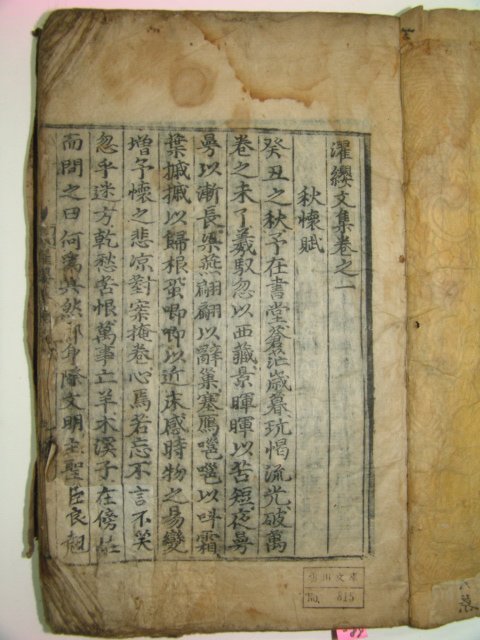 濯纓文集卷之一
秋懷賦
癸丑之秋予在書堂蒼茫歲暮玩愒流光破萬
卷之未了羲馭忽以西藏景暉暉以苦短夜曼
曼以漸長梁燕翩翩以辭巢塞鴈嗈嗈以叫霜
葉摵摵以歸根蛩喞喞以近床感時物之易變
增予懷之悲凉對案掩卷心焉若忘不言不笑
忽乎迷方乾愁 恨萬事亡羊木溪子在傍莊
而問之曰何爲其然耶 際文明主聖臣良
文庫
No. 815